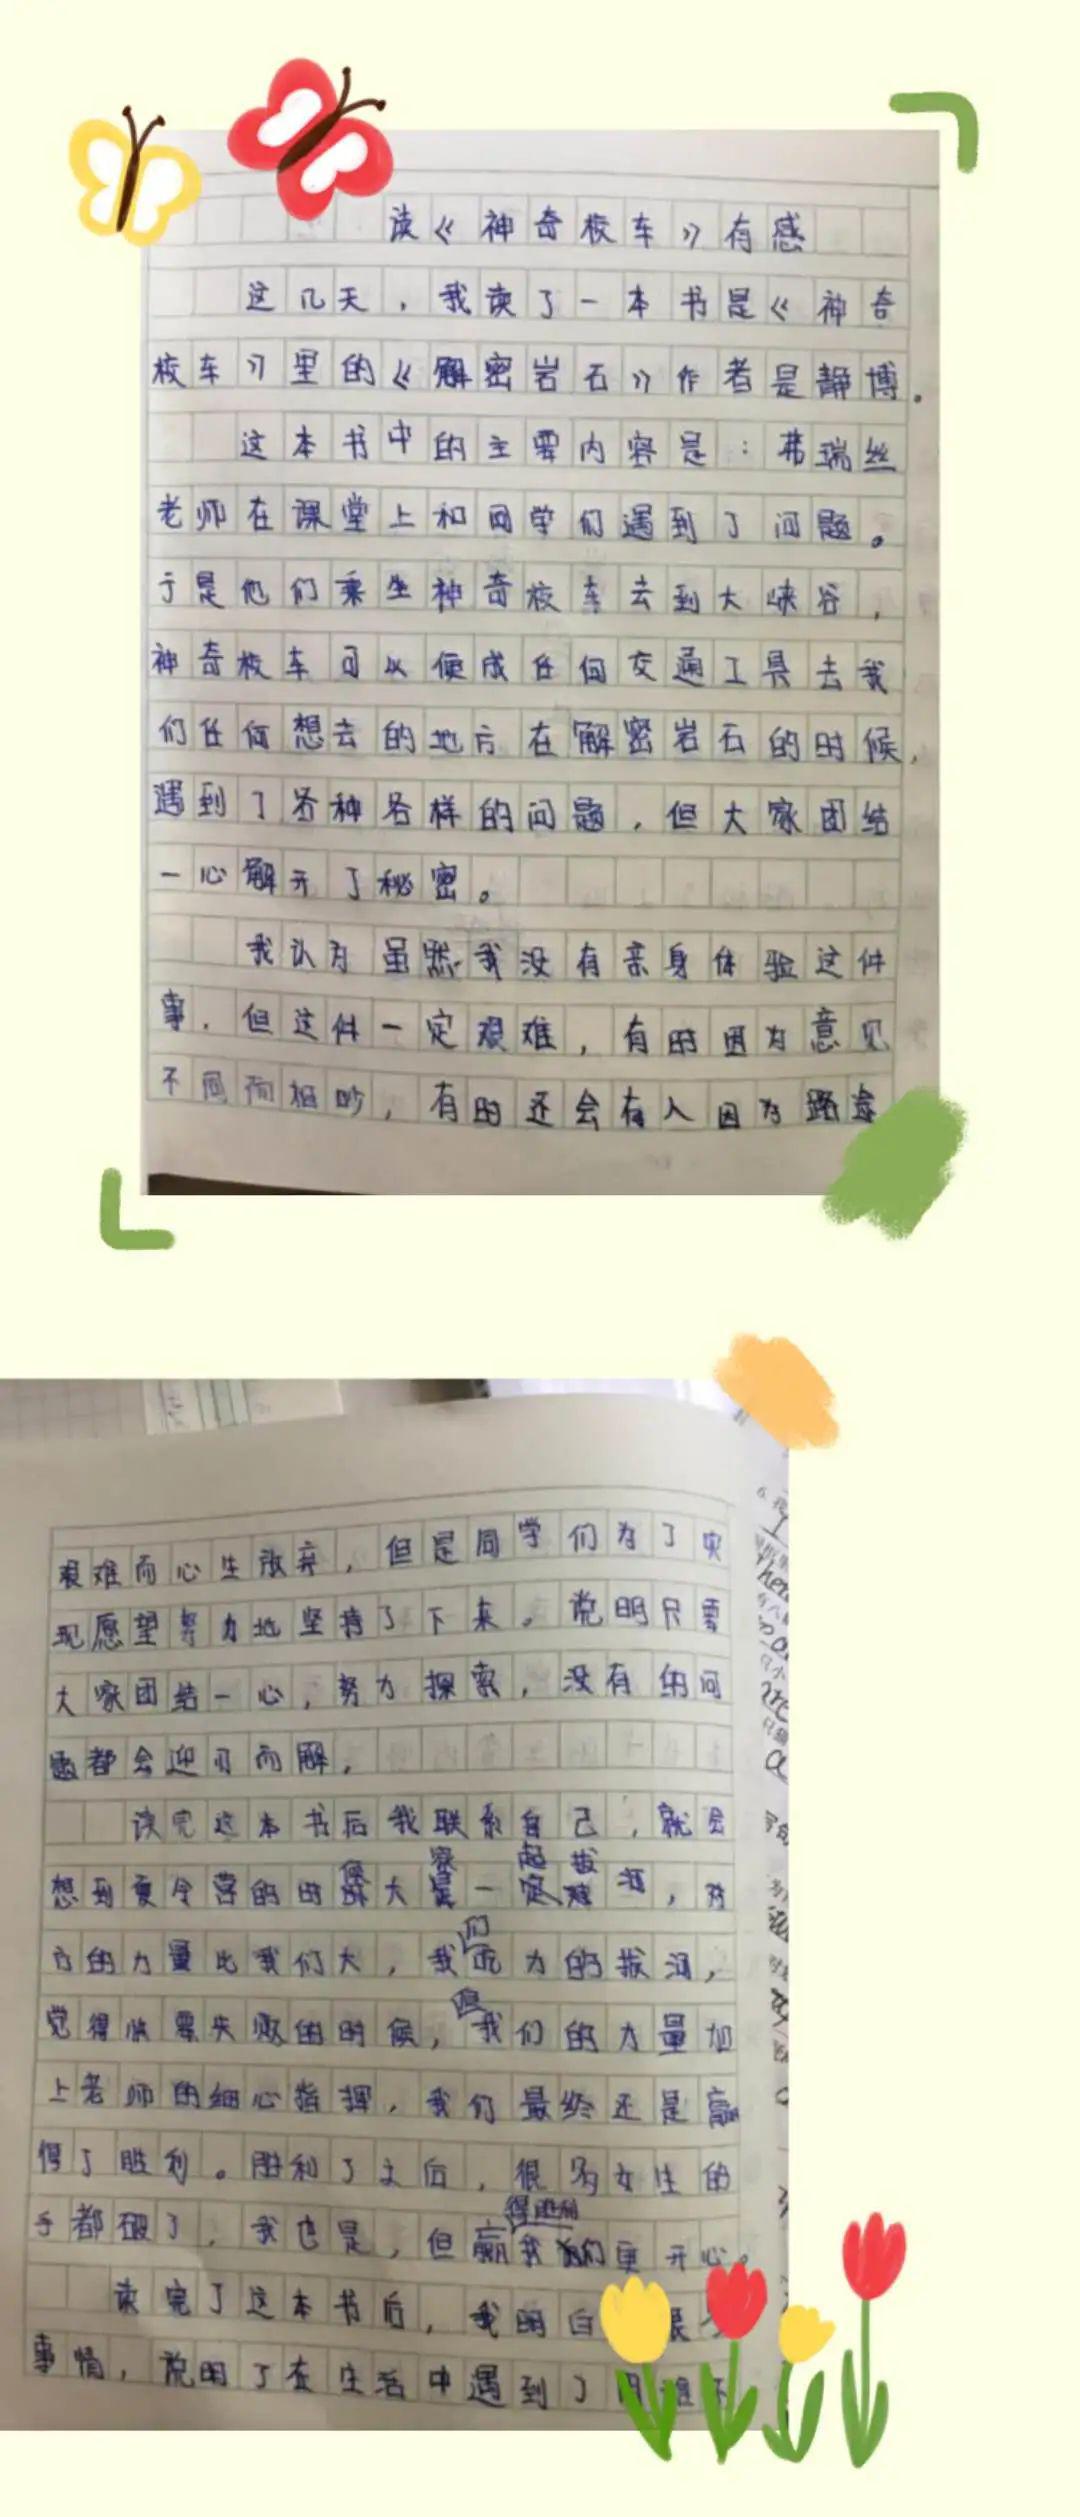 读《神奇校车》有感
这几天，我读了一本书是《神奇
校车》里的《解密岩石》作者是静博。
这本书中的主要内容是：弗瑞丝
老师在课堂上和同学们遇到了问题。
于是他们乘坐神奇校车去到大峡谷，
神奇校车可以便成任何交通工具去我
们任何想去的地方在解密岩石的时候，
遇到了各种各样的问题，但大家团结
一心解开了秘密。
我认为虽然我没有亲身体验这件
事，但这件一定艰难，有时因为意见
不同而相吵，有时还会有人因为路途
艰难而心生放弃，但是同学们为了实
现愿望努力地坚持了下来。说明只要
大家团结一心，努力探索，没有的问
题都会迎刃而解，
读完这本书后我联系自己，就会
想到夏令营的时候大家一起拔河，对
方的力量比我们大，我们吃力的拔河，
觉得快要失败的时候，我们的力量加
上老师的细心指挥，我们最终还是赢
得了胜利。胜利了之后，很多女生的
手都破了，我也是，但赢得胜利我们更开心。
读完了这本书后，我明白
事情，说明了在生活中遇到了